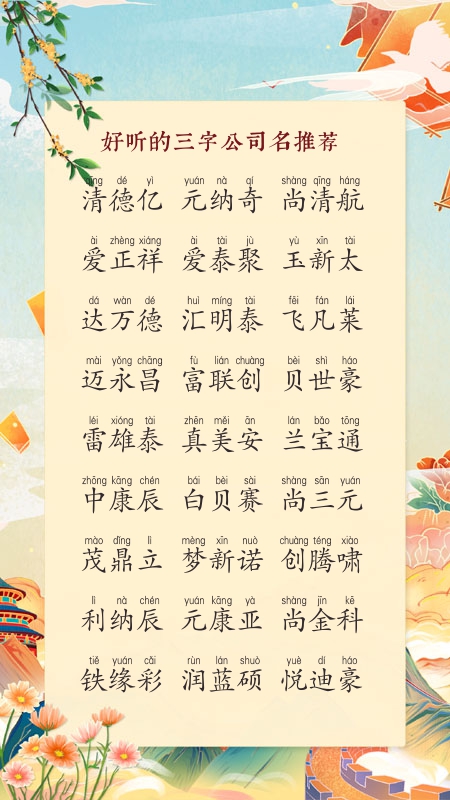 好听的三字公司名推荐
qīng dé yì yuán nà qí shàng qīng háng
清德亿 元纳奇 尚清航
ài zhèng xiáng ài tài jù yù xīn tài
爱正祥 爱泰聚 玉新太
dá wàn dé huì míng tài fēi fán lái
达万德 汇明泰 飞凡莱
mài yǒng chāng fù lián chuàng bèi shì háo
迈永昌 富联创 贝世豪
léi xióng tài zhēn měi ān lán bǎo tōng
雷雄泰 真美安 兰宝通
zhōng kāng chén bái bèi sài shàng sān yuán
中康辰 白贝赛 尚三元
mào dǐng lì mèng xīn nuò chuàng téng xiào
茂鼎立 梦新诺 创腾啸
lì nà chén yuán kāng yà shàng jīn kē
利纳辰 元康亚 尚金科
tiě yuán cǎi rùn lán shuò yuè dí háo
铁缘彩 润蓝硕 悦迪豪